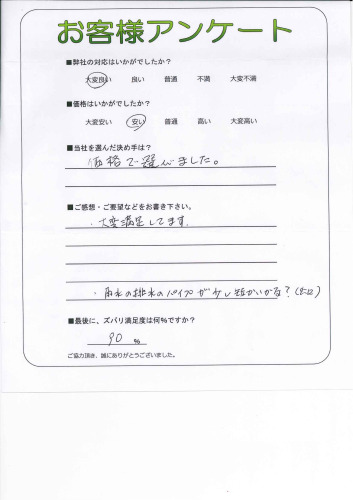 お客様アンケート
■弊社の対応はいかがでしたか?
大変良い 良い 普通 不満 大変不満
■価格はいかがでしたか?
大変安い 安い 普通 高い 大変高い
■当社を選んだ決め手は?
価格で選びました。
■ご感想・ご要望などをお書き下さい。
・大変満足してます。
・雨水の排水のパイプが少し短かいかな?
■最後に、ズバリ満足度は何%ですか?
90 %
ご協力頂き、誠にありがとうございました。